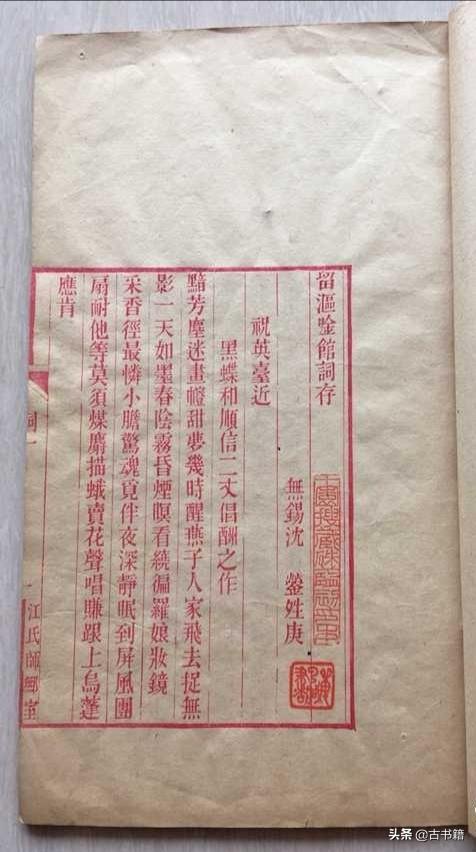 留漚唫館詞存
無錫沈 鎣姓庚
祝英臺近
黑蝶和順信二丈倡酬之作
黯芳塵迷畫幰甜夢幾時醒燕子人家飛去捉無
影一天如墨春陰霧昏煙暝看繞徧羅孃妝鏡
采香徑最憐小膽驚魂覓伴夜深靜眠到屏風團
扇耐他等莫須煤麝描蛾賣花聲唱賺跟上烏蓬
應肯
詞一
一
江氏師鄦室
头条 @古书籍